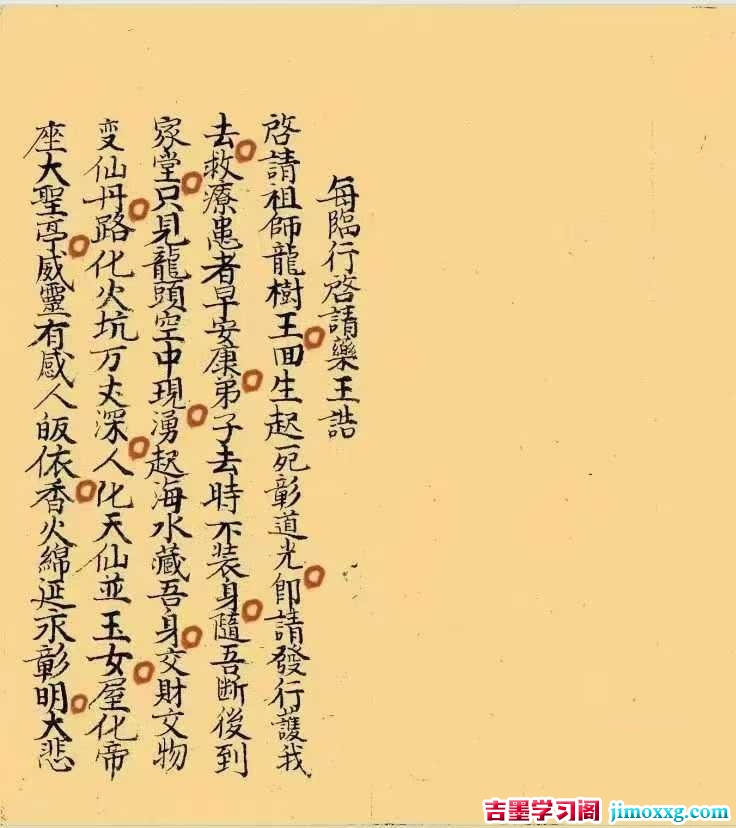 每臨行啓請藥王誥
啓請祖師龍樹王回生起死彰道光即請發行護我
去救療患者早安康弟子去時不装身隨吾断後到
家堂只見龍頭空中現湧起海水藏吾身交財交物
变仙丹路化火坑万丈深人化天仙並玉女屋化帝
座大聖亭威靈有感人皈依香火綿延永彰明大悲
吉墨学习阁 jimoxxg.com